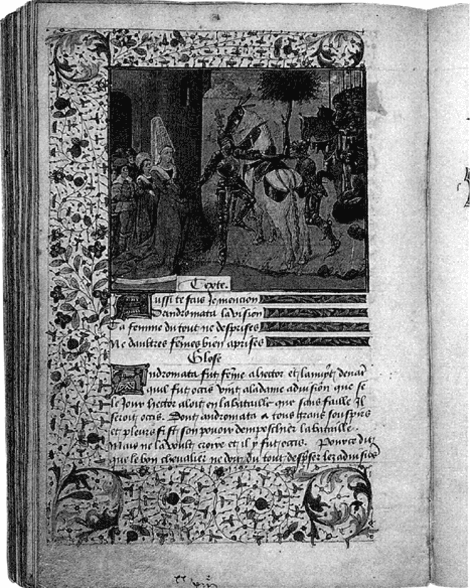 Texte.
Aussi te fais Je mencion
Dandromata la vision
Ta femme du tout ne desprises
Ne daultres fēmes bien aprises
Glose
Andromata fut fēme a hector et la nuyt deuāt
quil fut occis vint a la dame aduision que se
le Jour hector aloit en la bataille que sans faille Il
seroit occis. Dont andromata a tous grans souspirs
et pleurs fist son pouoir la bataille
Mais ne la voult croire et il y fut occis. Pource
que le bon cheualier ne doit du tout les aduisiōs